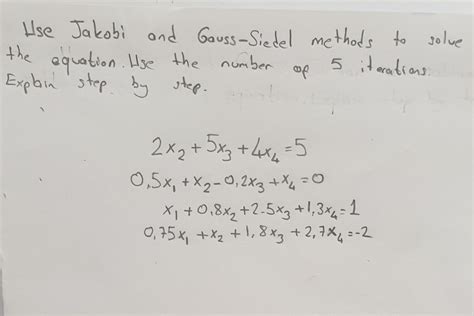 Use Jakobi and Gauss-Siedel methods to solve
the equation. Use the number op 5 iterations.
Explain step by step.
2x₂ + 5x₃ + 4x₄ = 5
0,5x₁ + x₂ - 0,2x₃ + x₄ = 0
x₁ + 0,8x₂ + 2.5x₃ + 1,3x₄ = 1
0,75x₁ + x₂ + 1,8x₃ + 2,7x₄ = -2